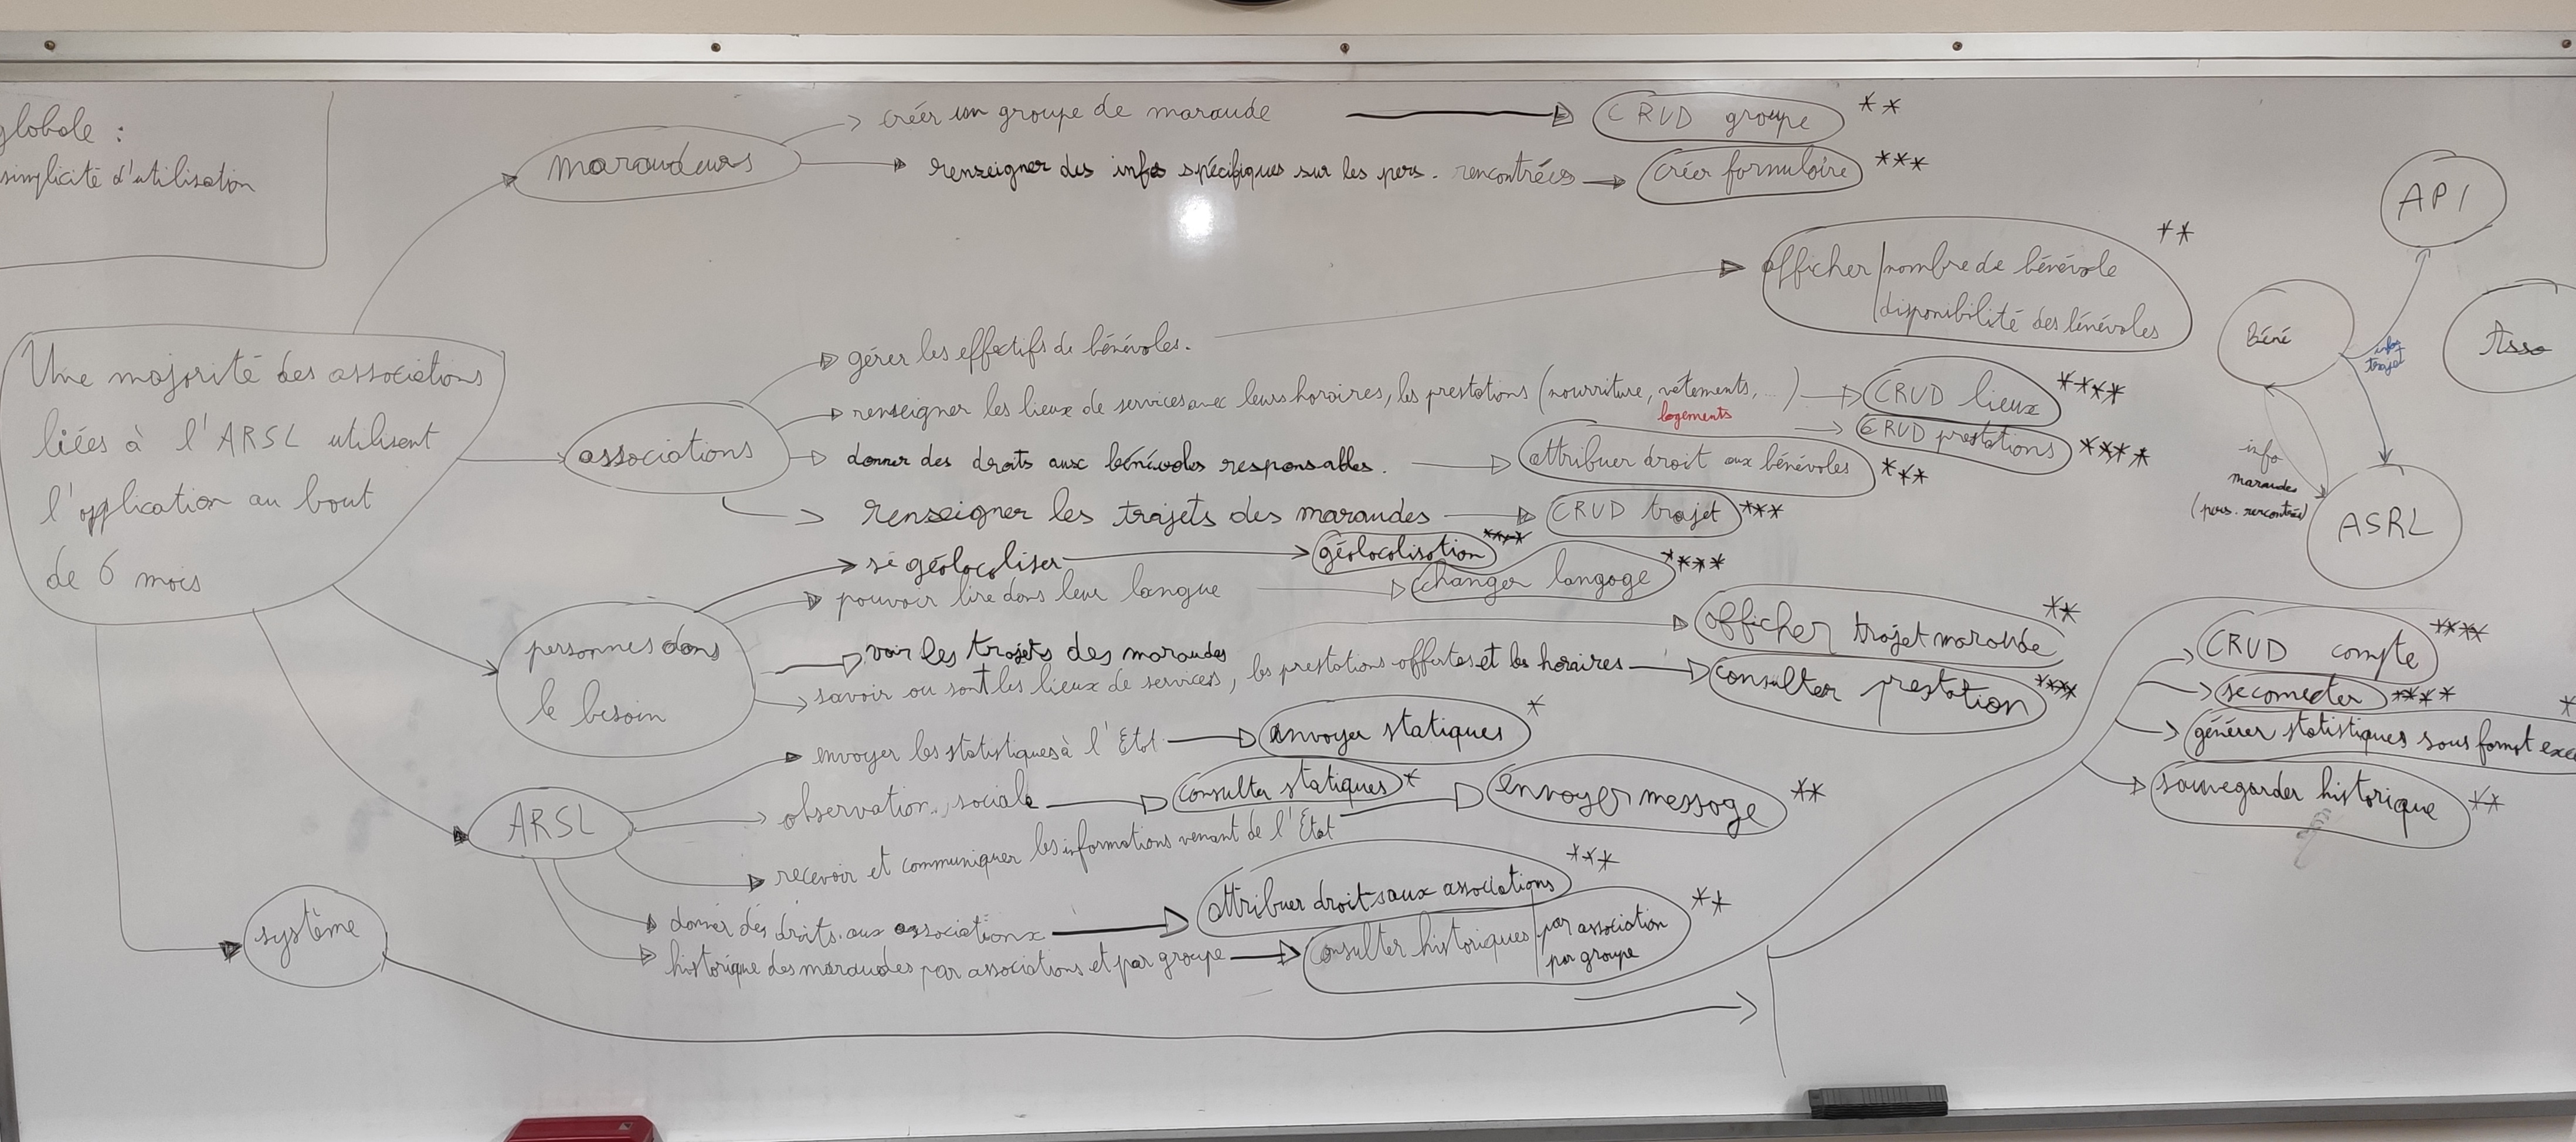 globale :
simplicité d'utilisation
Une majorité des associations
liées à l'ARSL utilisent
l'application au bout
de 6 mois
maraudeurs
créer un groupe de maraude
CRUD groupe **
renseigner des infos spécifiques sur les pers. rencontrées
créer formulaire ***
associations
gérer les effectifs de bénévoles.
afficher / nombre de bénévole
disponibilité des bénévoles **
renseigner les lieux de services avec leurs horaires, les prestations (nourriture, vêtements, ...)
logements
CRUD lieux ****
CRUD prestations ****
donner des droits aux bénévoles responsables.
attribuer droit aux bénévoles ***
renseigner les trajets des maraudes
CRUD trajet ***
personnes dans
le besoin
se géolocaliser
géolocalisation ****
pouvoir lire dans leur langue
changer langage ****
voir les trajets des maraudes
afficher trajet maraude **
savoir ou sont les lieux de services, les prestations offertes et les horaires
consulter prestation ****
ARSL
envoyer les statistiques à l'Etat
envoyer statiques *
observation sociale
consulter statiques *
recevoir et communiquer les informations venant de l'Etat
envoyer message **
donner des droits aux associations
attribuer droits aux associations ***
historique des maraudes par associations et par groupe
consulter historiques / par association
par groupe **
système
CRUD compte ****
se connecter ****
générer statistiques sous format exce
*
sauvegarder historique **
API
Béné
Asso
info
trajet
info
maraudes
(pers. rencontrée)
ASRL